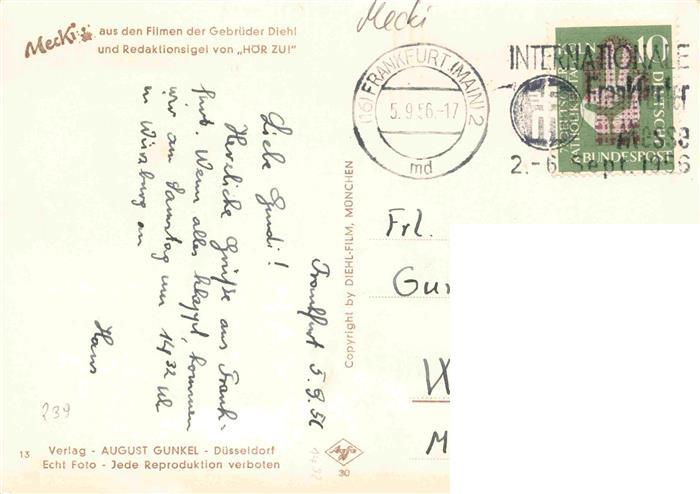 Mecki aus den Filmen der Gebrüder Diehl
und Redaktionsigel von „HÖR ZU!"
Mecki
(16) FRANKFURT (MAIN) 2
5.9.56.-17
md
INTERNATIONALE
Frankfurter
Messe
2.-6. Sept. 1956
KÖLN
10
DEUTSCHE
BUNDESPOST
Frankfurt 5.9.56
Liebe Gundi!
Herzliche Grüße aus Frank-
furt. Wenn alles klappt, kommen
wir am Samstag um 14 32 Uhr
in Würzburg an
Hans
Copyright by DIEHL-FILM, MÜNCHEN
Frl.
Gun
W
M
239
13 Verlag - AUGUST GUNKEL - Düsseldorf
Echt Foto - Jede Reproduktion verboten
Agfa
30